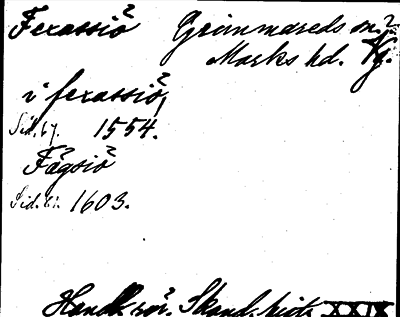 Ferassiö Grimmareds sn.
Marks hd. Vg.
i ferassiö,
Sid. 67. 1554.
Fägsiö
Sid. 61. 1603.
Handl. rör. Skand. hist. XXIX